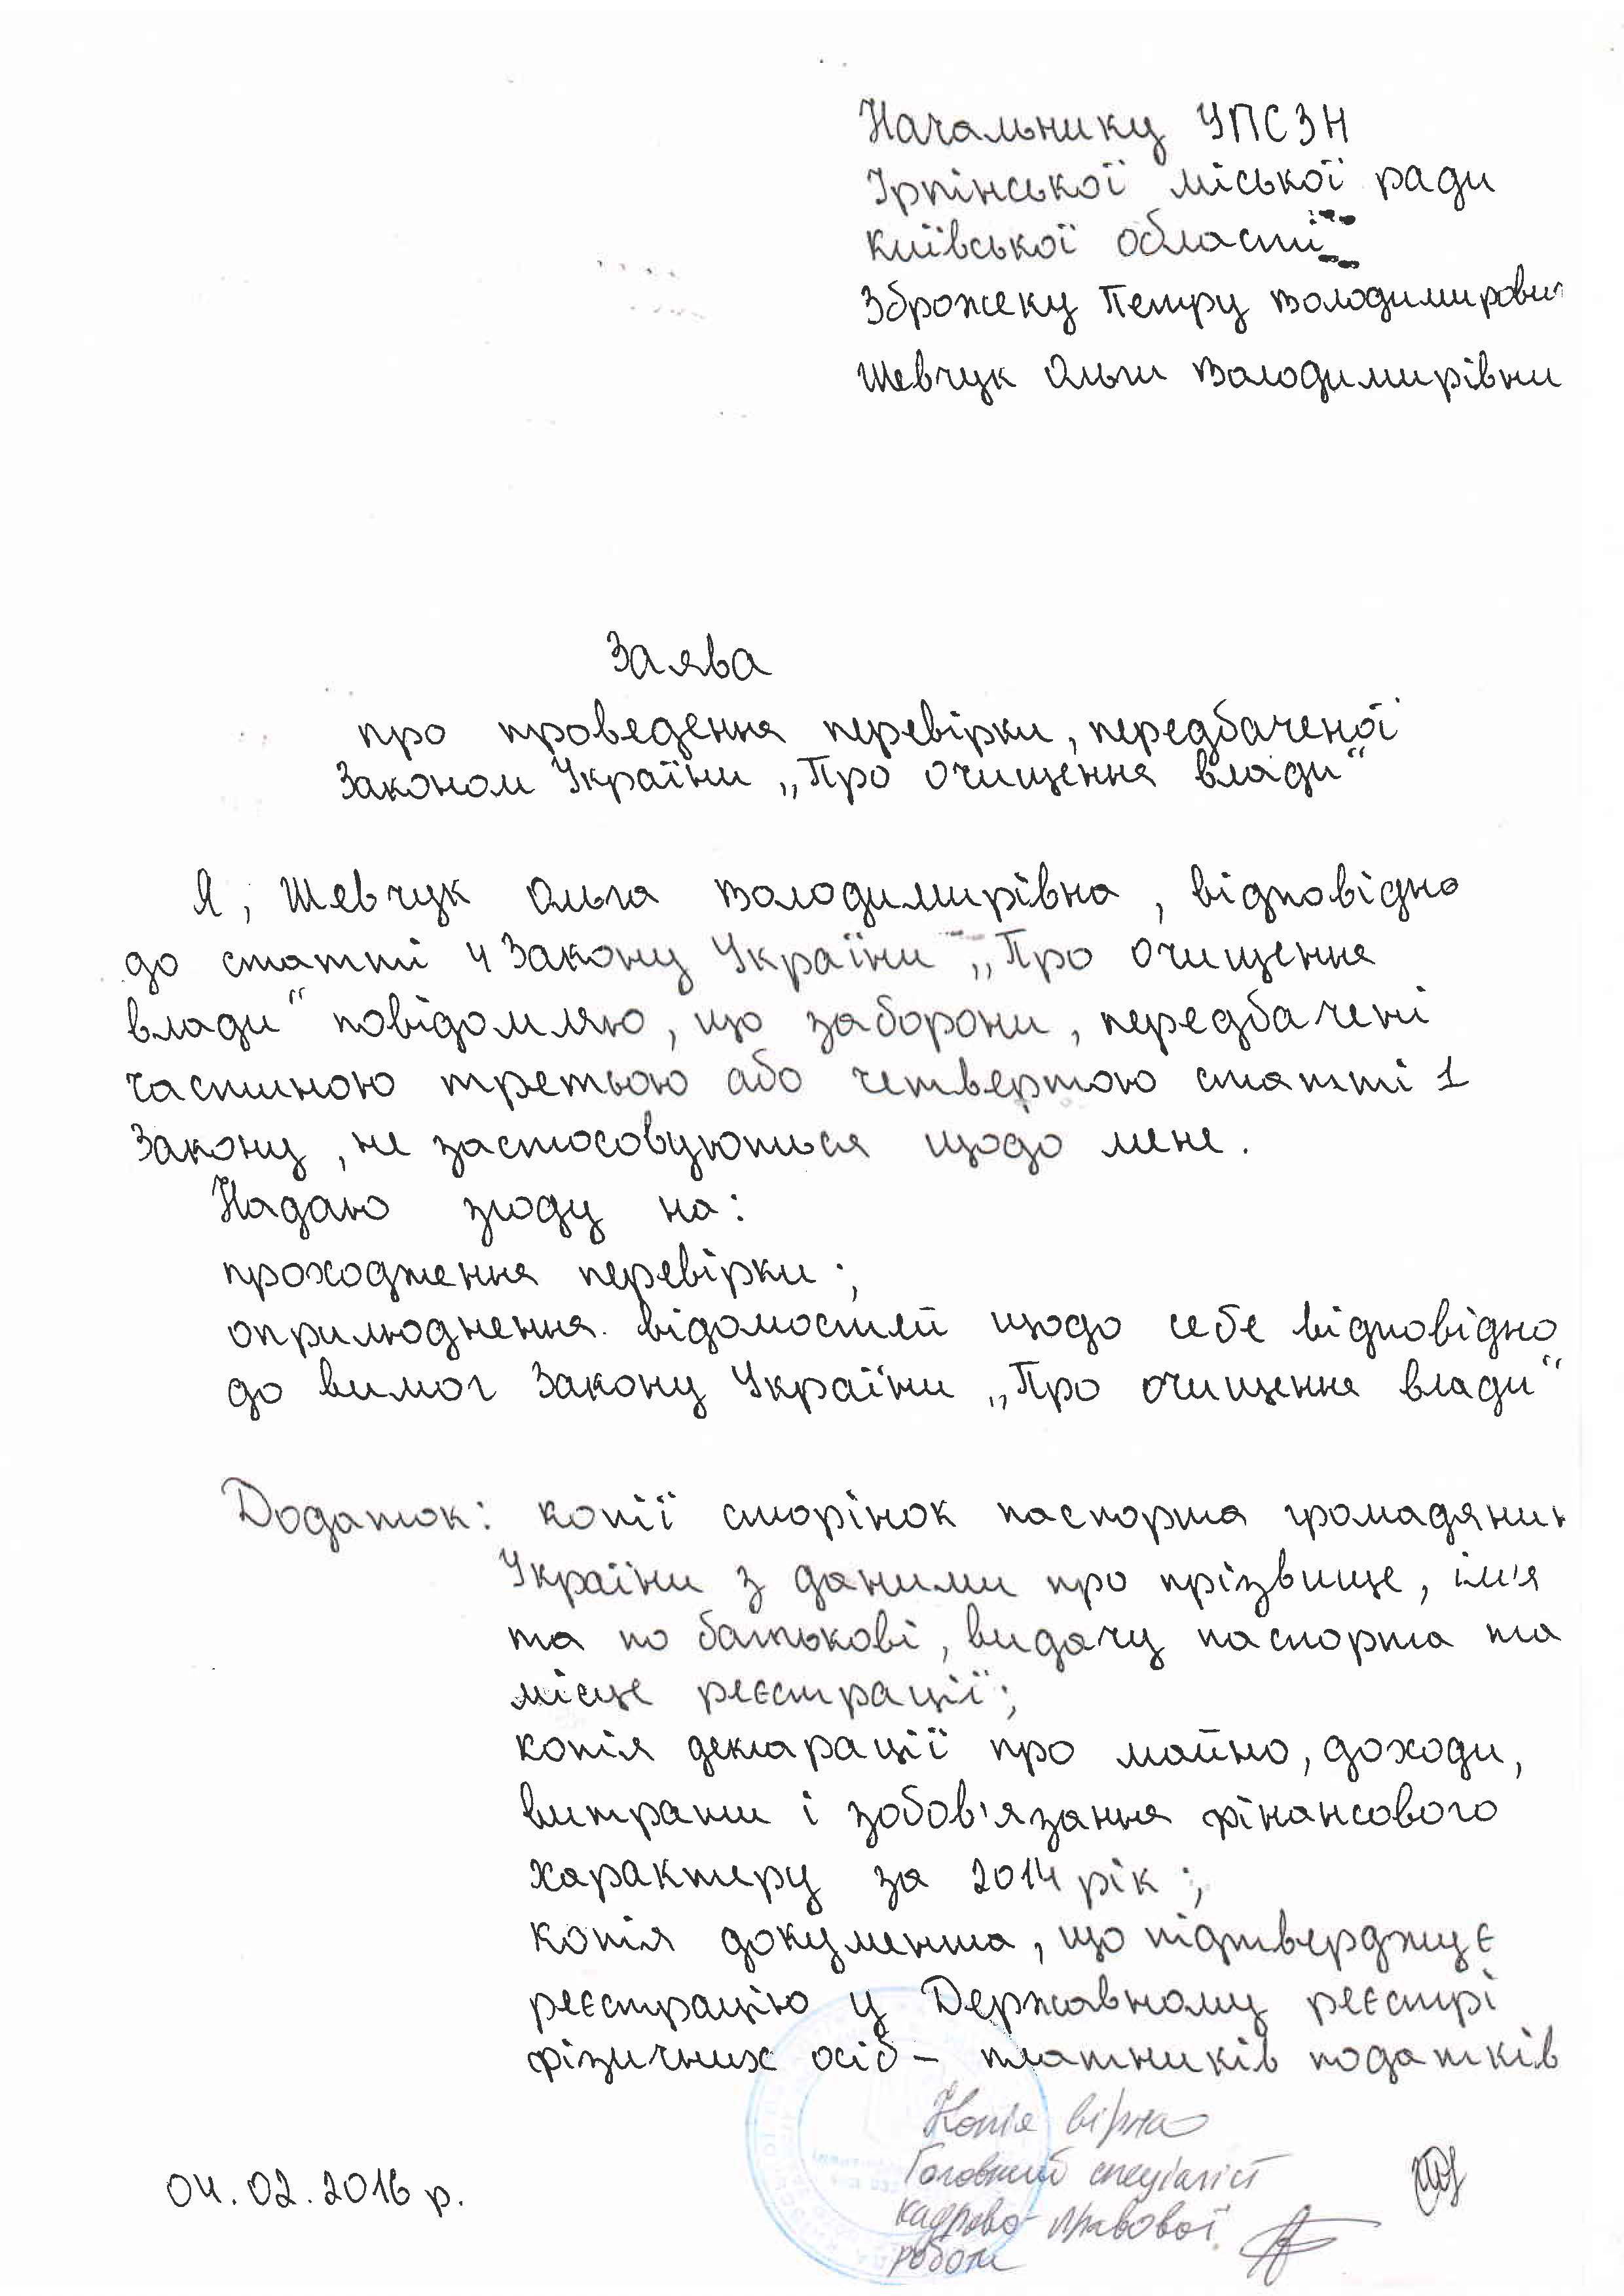 Начальнику УПСЗН
Ірпінської міської ради
Київської області
Зброжеку Петру Володимирови
Шевчук Ольги Володимирівни
Заява
про проведення перевірки, передбаченої
Законом України „Про очищення влади“
Я, Шевчук Ольга Володимирівна, відповідно
до статті 4 Закону України „Про очищення
влади“ повідомляю, що заборони, передбачені
частиною третьою або четвертою статті 1
Закону, не застосовуються щодо мене.
Надаю згоду на:
проходження перевірки;
оприлюднення відомостей щодо себе відповідно
до вимог Закону України „Про очищення влади“
Додаток: копії сторінок паспорта громадянин
України з даними про прізвище, ім'я
та по батькові, видачу паспорта та
місце реєстрації;
копія декларації про майно, доходи,
витрати і зобов'язання фінансового
характеру за 2014 рік;
копія документа, що підтверджує
реєстрацію у Державному реєстрі
фізичних осіб – платників податків
Копія вірна
Головний спеціаліст
04.02.2016 р.
кадрово-правової
роботи